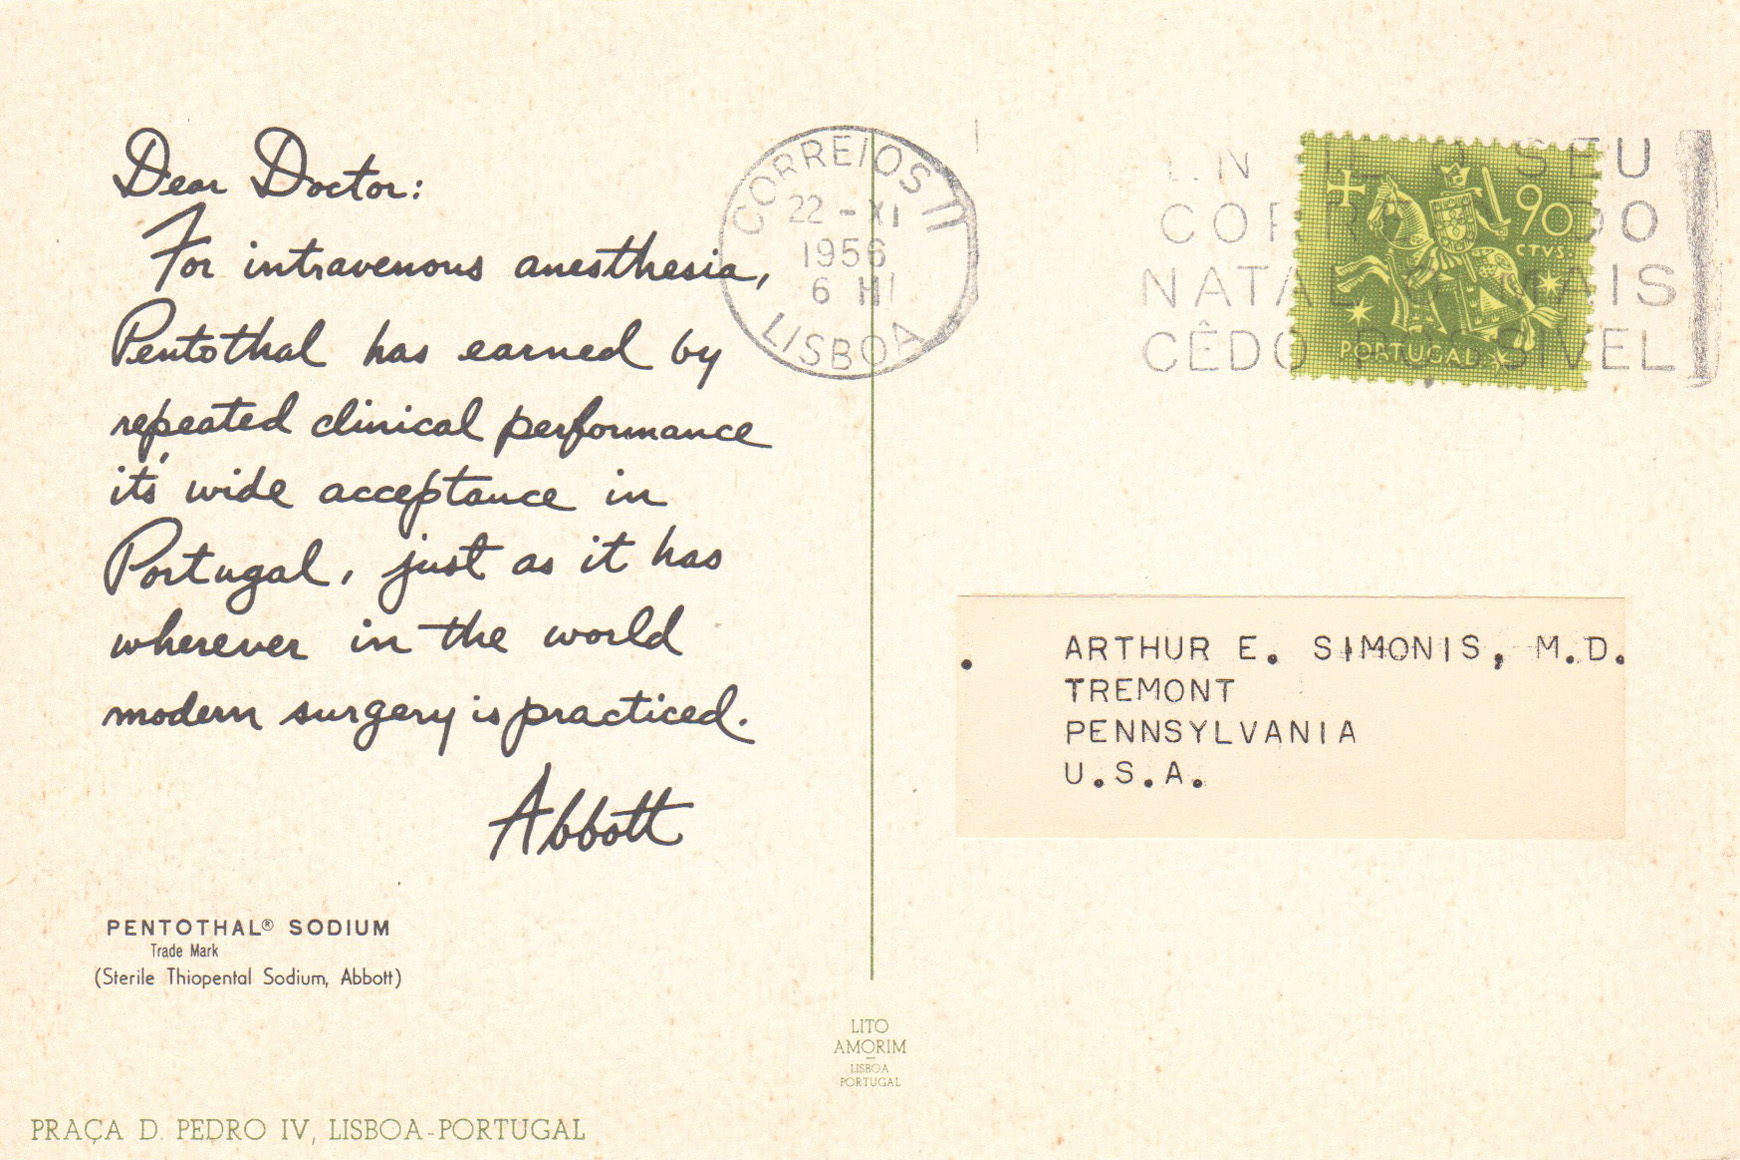 Dear Doctor:
For intravenous anesthesia,
Pentothal has earned by
repeated clinical performance
it's wide acceptance in
Portugal, just as it has
wherever in the world
modern surgery is practiced.
Abbott
PENTOTHAL® SODIUM
Trade Mark
(Sterile Thiopental Sodium, Abbott)
PRAÇA D. PEDRO IV, LISBOA-PORTUGAL
LITO
AMORIM
LISBOA
PORTUGAL
CORREIOS
22-XI
1956
6 H
LISBOA
SEU
NATAL MAIS
CÊDO
90
CTVS.
PORTUGAL
ARTHUR E. SIMONIS, M.D.
TREMONT
PENNSYLVANIA
U.S.A.